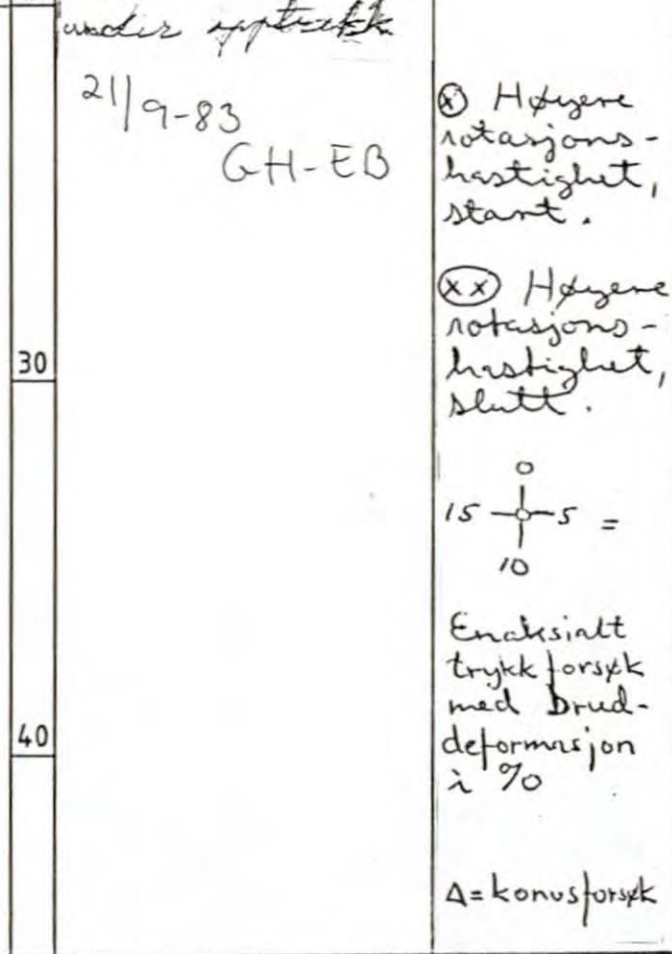 under opptrekk
21/9-83
GH-EB
30
40
ⓧ Høyere
rotasjons-
hastighet,
start.
(xx) Høyere
rotasjons-
hastighet,
slutt.
0
15 5 =
10
Enaksialt
trykkforsøk
med brud-
deformasjon
i %
Δ = konusforsøk